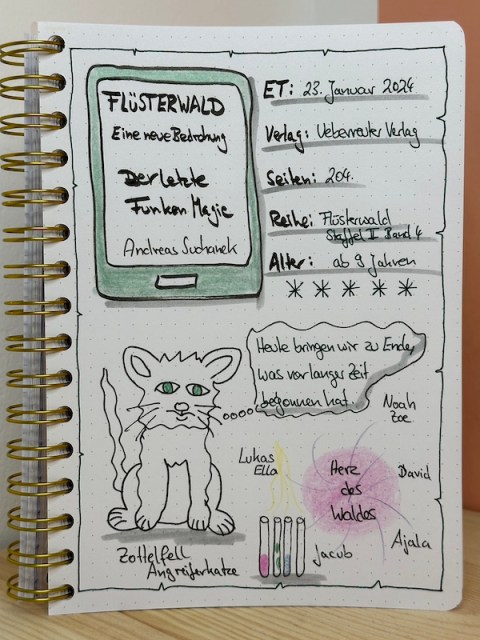 FLÜSTERWALD
Eine neue Bedrohung
Der letzte
Funken Magie
Andreas Suchanek
ET: 23. Januar 2024
Verlag: Ueberreuter Verlag
Seiten: 204.
Reihe: Flüsterwald
Staffel II Band 4
Alter: ab 9 Jahren
Heute bringen wir zu Ende,
was vor langer Zeit
begonnen hat.
Noah
Zoe
Lukas
Ella
Herz
des
Waldes
David
Ajala
Jacob
Zottelfell
Angreiferkatze